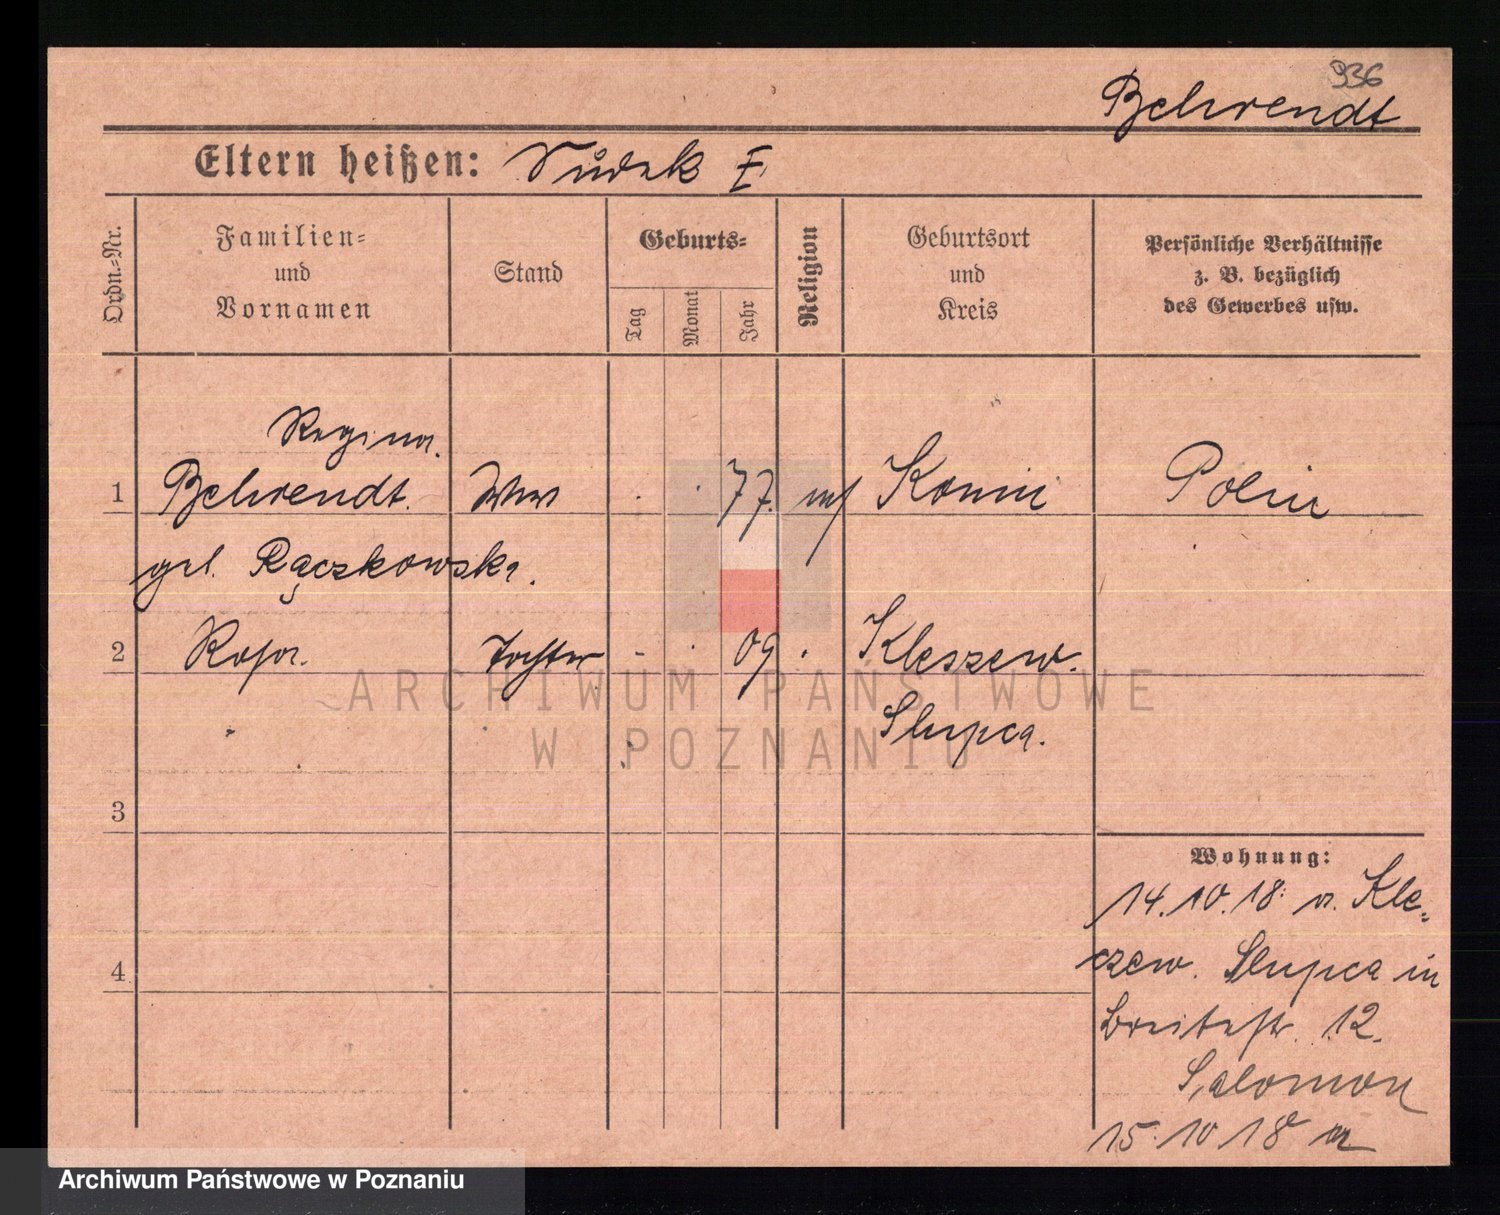 936
Behrendt
Eltern heißen:
Ordn.-Nr.
Familien-
und
Vornamen
Stand
Geburts-
Tag
Monat
Jahr
Religion
Geburtsort
und
Kreis
Persönliche Verhältnisse
z. B. bezüglich
des Gewerbes usw.
Regina
1 Behrendt. Wwe 77. Konin Polin
geb. Rączkowska.
2 Rosa. Tochter 09 Kleszew.
Slupca.
3
4
Wohnung:
14.10.18. v. Kle-
czew. Slupca in
Breitestr. 12.
Salomon
15.10 18
ARCHIWUM PAŃSTWOWE
W POZNANIU
Archiwum Państwowe w Poznaniu